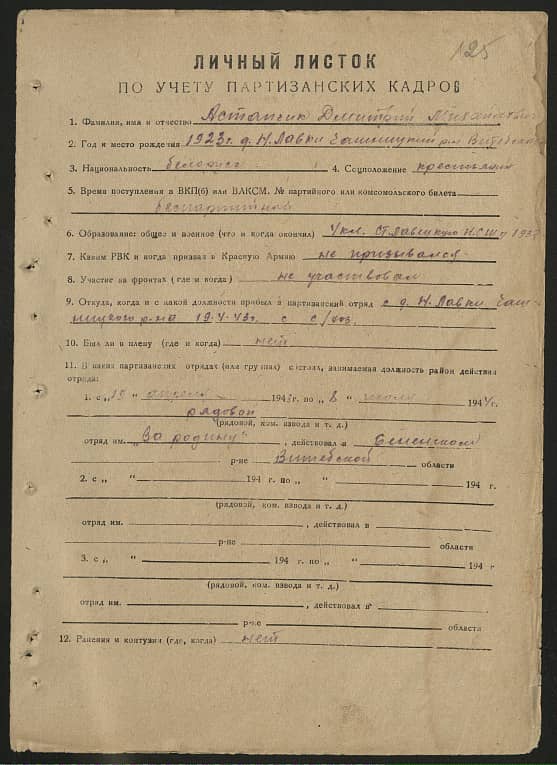 125
ЛИЧНЫЙ ЛИСТОК
ПО УЧЕТУ ПАРТИЗАНСКИХ КАДРОВ
1. Фамилия, имя и отчество Дмитрий
2. Год и место рождения 1923 г. д. Н. Лавки Чашницкий р-н
3. Национальность белорус 4. Соцположение крестьянин
5. Время поступления в ВКП(б) или ВЛКСМ. № партийного или комсомольского билета
беспартийной
6. Образование: общее и военное (что и когда окончил)
7. Каким РВК и когда призван в Красную Армию не призывался
8. Участие на фронтах (где и когда) не участвовал
9. Откуда, когда и с какой должности прибыл в партизанский отряд с д. Н. Лавки Чаш-
ницкого р-на 19.4.43 г. с с/хоз.
10. Был ли в плену (где и когда) нет
11. В каких партизанских отрядах (или группах) состоял, занимаемая должность район действия
отряда:
1. с „19 “ апреля 1943 г. по „ 194 г.
рядовой
(рядовой, ком. взвода и т. д.)
отряд им. "За родину" , действовал в
р-не Витебской области
2. с „ “ 194 г. по „ “ 194 г.
(рядовой, ком. взвода и т. д.)
отряд им. , действовал в
р-не области
3. с „ “ 194 г. по „ “ 194 г
(рядовой, ком. взвода и т. д.)
отряд им. , действовал в
р-не области
12. Ранения и контузии (где, когда) нет